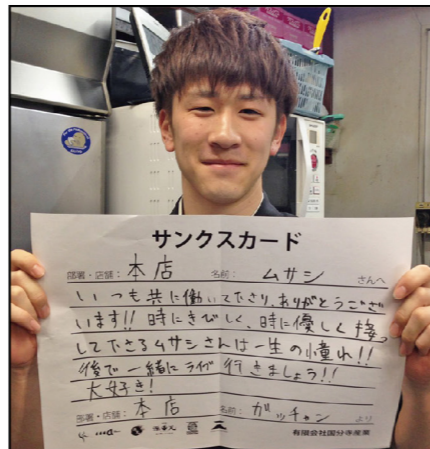 サンクスカード
部署・店舗： 本店 名前： ムサシ さんへ
いつも共に働いて下さり、ありがとうござ
います!! 時にきびしく、時に優しく接
して下さるムサシさんは一生の憧れ!!
後で一緒にライブ行きましょう!!
大好き!
部署・店舗： 本店 名前： ガッチャン より
有限会社国分寺産業